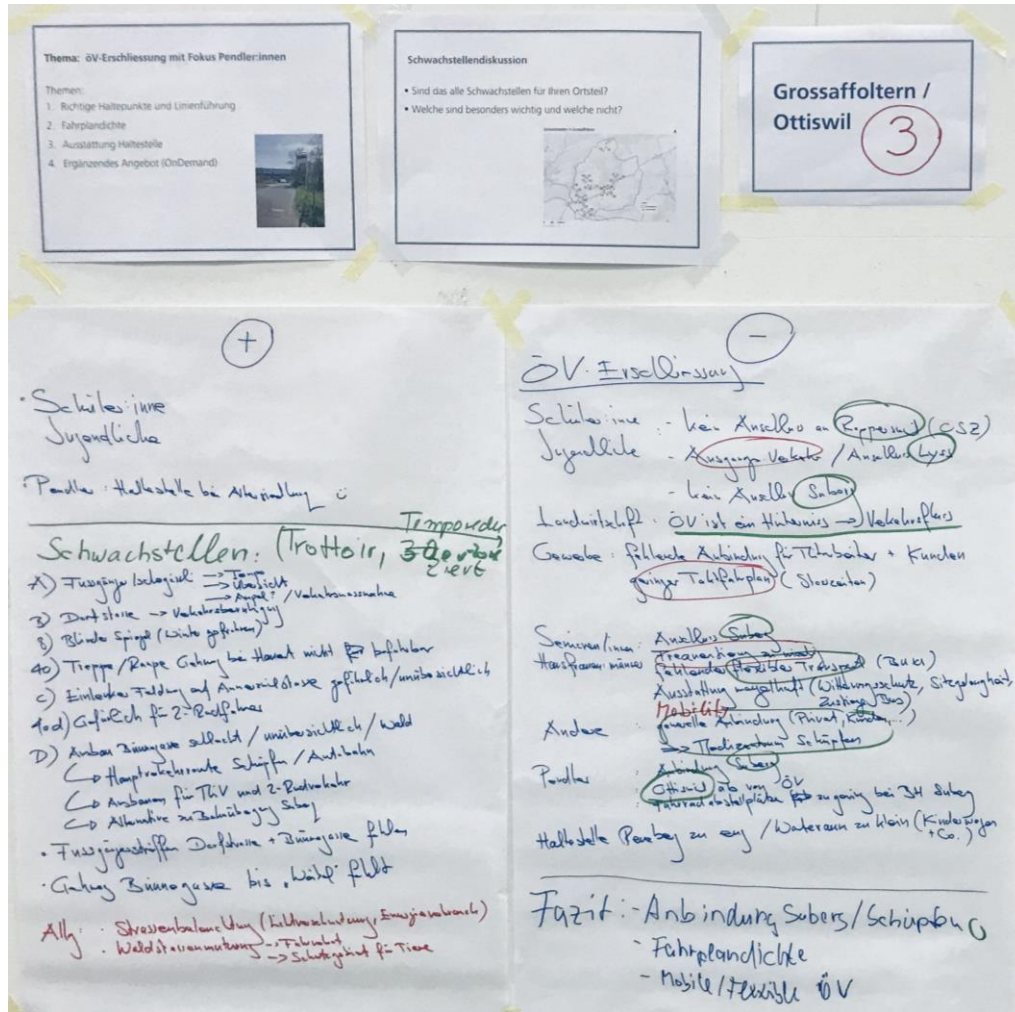 Thema: öV-Erschliessung mit Fokus Pendler:innen
Themen:
1. Richtige Haltepunkte und Linienführung
2. Fahrplandichte
3. Ausstattung Haltestelle
4. Ergänzendes Angebot (OnDemand)
Schwachstellendiskussion
• Sind das alle Schwachstellen für Ihren Ortsteil?
• Welche sind besonders wichtig und welche nicht?
Grossaffoltern /
Ottiswil
3
+
· Schüler:inne
Jugendliche
· Pendler: Haltestelle bei Alterssiedlung
Schwachstellen: (Trottoir,
A) Fussgänger
→ Tempo
→ Übersicht
/ Verkehrsmassnahme
B) Dorfstrasse → Verkehrsberuhigung
B) Blinder Spiegel (Winter gefroren)
40) Treppe/Rampe Gehweg bei nicht befahrbar
C) Einlenker auf gefährlich/unübersichtlich
40d) Gefährlich für 2-Radfahrer
D) Ausbau Bünngasse schlecht / unübersichtlich / Wald
↳ Hauptverkehrsroute Schüpfen / Autobahn
↳ Ausbauen für und 2-Radverkehr
↳ Alternative zu Bahnübergang Suberg
· Fussgängerstreifen Dorfstrasse + Bünngasse fehlen
· Gehweg Bünngasse bis fehlt
Allg: · Strassenbeleuchtung (Lichtverschmutzung, Energieverbrauch)
· Waldstrassennutzung → Fahrverbot
→ Schutzgebiet für Tiere
−
ÖV-Erschliessung
Schüler:inne - kein Anschluss an Rapperswil (OSZ)
Jugendliche - Ausgangs Verkehr / Anschluss Lyss
- kein Anschluss Suberg
Landwirtschaft: ÖV ist ein Hindernis → Verkehrsfluss
Gewerbe: fehlende Anbindung für Mitarbeiter + Kunden
geringer Taktfahrplan (Stosszeiten)
Senioren/innen: Anschluss Suberg
Hausfrauen/männer:
Fehlender flexibler Transport (BUKI)
Ausstattung mangelhaft (Witterungsschutz, Sitzgelegenheit,
Zustieg Bus)
Mobility
Andere generelle Anbindung (Privat, Kunden,...)
→ Schüpfen
Pendler: Anbindung Suberg
Ottiswil ab vom ÖV
Fahrradabstellplätze zu gering bei BH Suberg
Haltestelle zu eng / Warteraum zu klein (Kinderwagen
+ Co.)
Fazit: - Anbindung Suberg/Schüpfen
- Fahrplandichte
- Mobile/Flexible ÖV